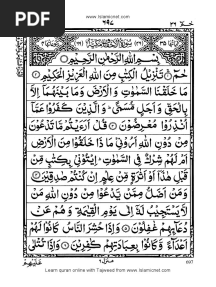 www.islamicnet.com
PDF
حٰمٓ ۲۶
۶۹۷
بِسْمِ اللّٰهِ الرَّحْمٰنِ الرَّحِيْمِ
حٰمٓ ۚ تَنْزِيْلُ الْكِتٰبِ مِنَ اللّٰهِ الْعَزِيْزِ الْحَكِيْمِ
مَا خَلَقْنَا السَّمٰوٰتِ وَالْاَرْضَ وَمَا بَيْنَهُمَآ اِلَّا
بِالْحَقِّ وَاَجَلٍ مُّسَمًّى ۭ وَالَّذِيْنَ كَفَرُوْا عَمَّآ
اُنْذِرُوْا مُعْرِضُوْنَ قُلْ اَرَءَيْتُمْ مَّا تَدْعُوْنَ
مِنْ دُوْنِ اللّٰهِ اَرُوْنِيْ مَاذَا خَلَقُوْا مِنَ الْاَرْضِ
اَمْ لَهُمْ شِرْكٌ فِي السَّمٰوٰتِ ۭ اِيْتُوْنِيْ بِكِتٰبٍ مِّنْ
قَبْلِ هٰذَآ اَوْ اَثٰرَةٍ مِّنْ عِلْمٍ اِنْ كُنْتُمْ صٰدِقِيْنَ
وَمَنْ اَضَلُّ مِمَّنْ يَّدْعُوْا مِنْ دُوْنِ اللّٰهِ مَنْ
لَّا يَسْتَجِيْبُ لَهٗٓ اِلٰى يَوْمِ الْقِيٰمَةِ وَهُمْ عَنْ
دُعَآئِهِمْ غٰفِلُوْنَ وَاِذَا حُشِرَ النَّاسُ كَانُوْا لَهُمْ
اَعْدَآءً وَّكَانُوْا بِعِبَادَتِهِمْ كٰفِرِيْنَ وَاِذَا تُتْلٰى
عَلَيْهِمْ
منزل ۶
697
Learn quran online with Tajweed from www.islamicnet.com